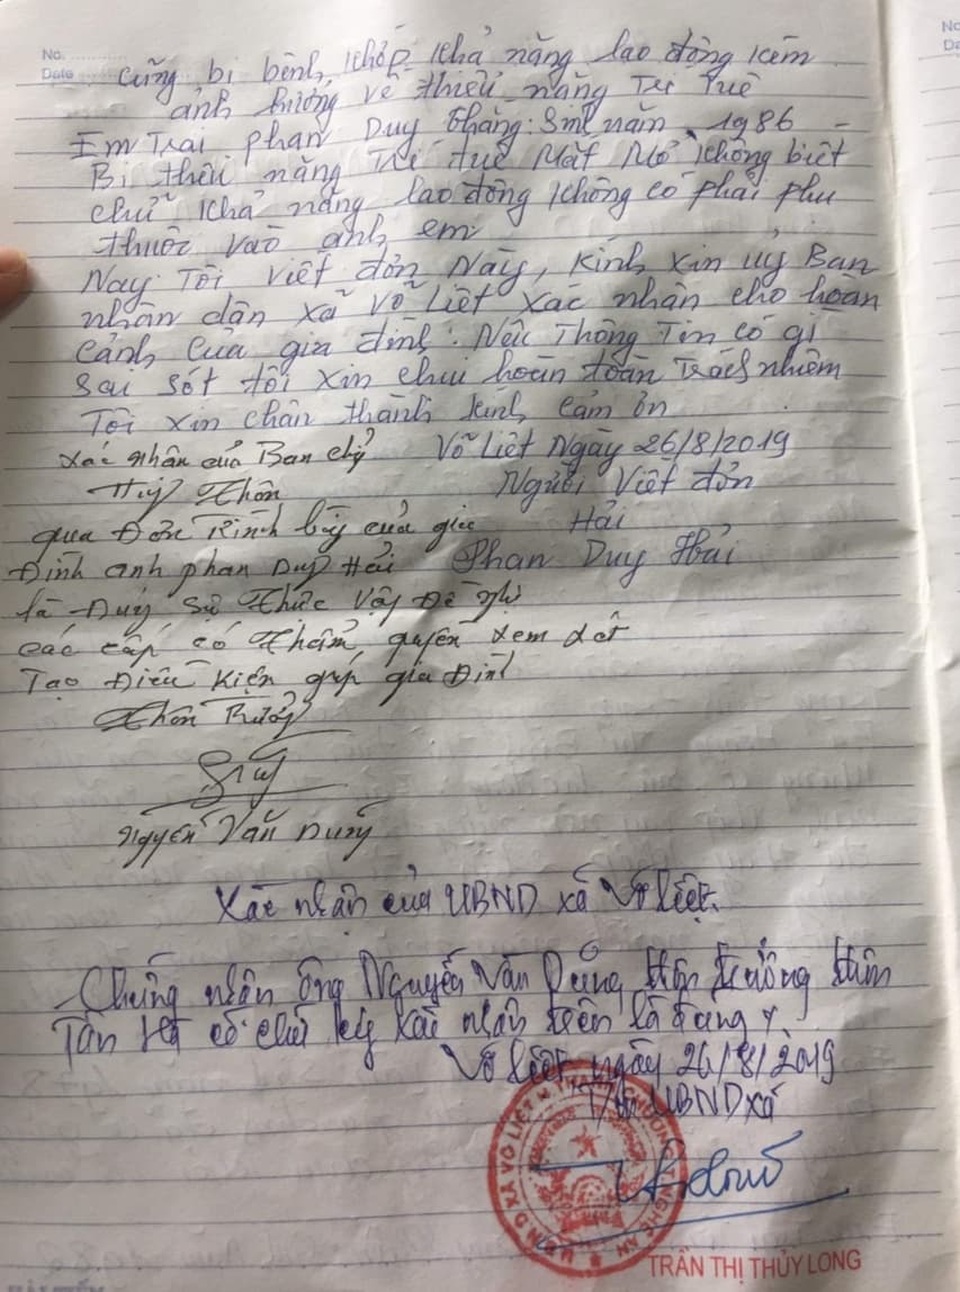 No.
Date
cũng bị bệnh khớp khả năng lao động kém
ảnh hưởng về thiểu năng trí tuệ
Em Trai phan Duy thắng: Sinh năm 1986 -
Bị thiểu năng Trí tuệ Mắt Mờ không biết
chữ khả năng lao động không có phải phụ
thuộc vào anh em
Nay Tôi viết đơn Này, kính xin uỷ Ban
nhân dân xã Võ Liệt Xác nhận cho hoàn
cảnh của gia đình. Nếu Thông Tin có gì
sai sót tôi xin chịu hoàn toàn trách nhiệm
Tôi xin chân thành kính cảm ơn
Võ Liệt Ngày 26/8/2019
Người Viết đơn
Hải
Phan Duy Hải
Xác nhận của Ban chỉ
Huy Thôn
qua Đơn Trình bày của gia
Đình anh phan Duy Hải
là Đúng Sự Thức Vậy Đề nghị
các cấp có thẩm quyền xem xét
Tạo Điều kiện giúp gia Đình
Thôn Trưởng
Nguyễn Văn Dũng
Xác nhận của UBND xã Võ Liệt.
Chứng nhận ông Nguyễn Văn Dũng thôn trưởng thôn
Tân Hà có chữ ký xác nhận trên là đúng
Võ Liệt, ngày 26/8/2019
T/M UBND xã
UBND XÃ VÕ LIỆT H. THANH CHƯƠNG T. NGHỆ AN
TRẦN THỊ THỦY LONG
No.
Da